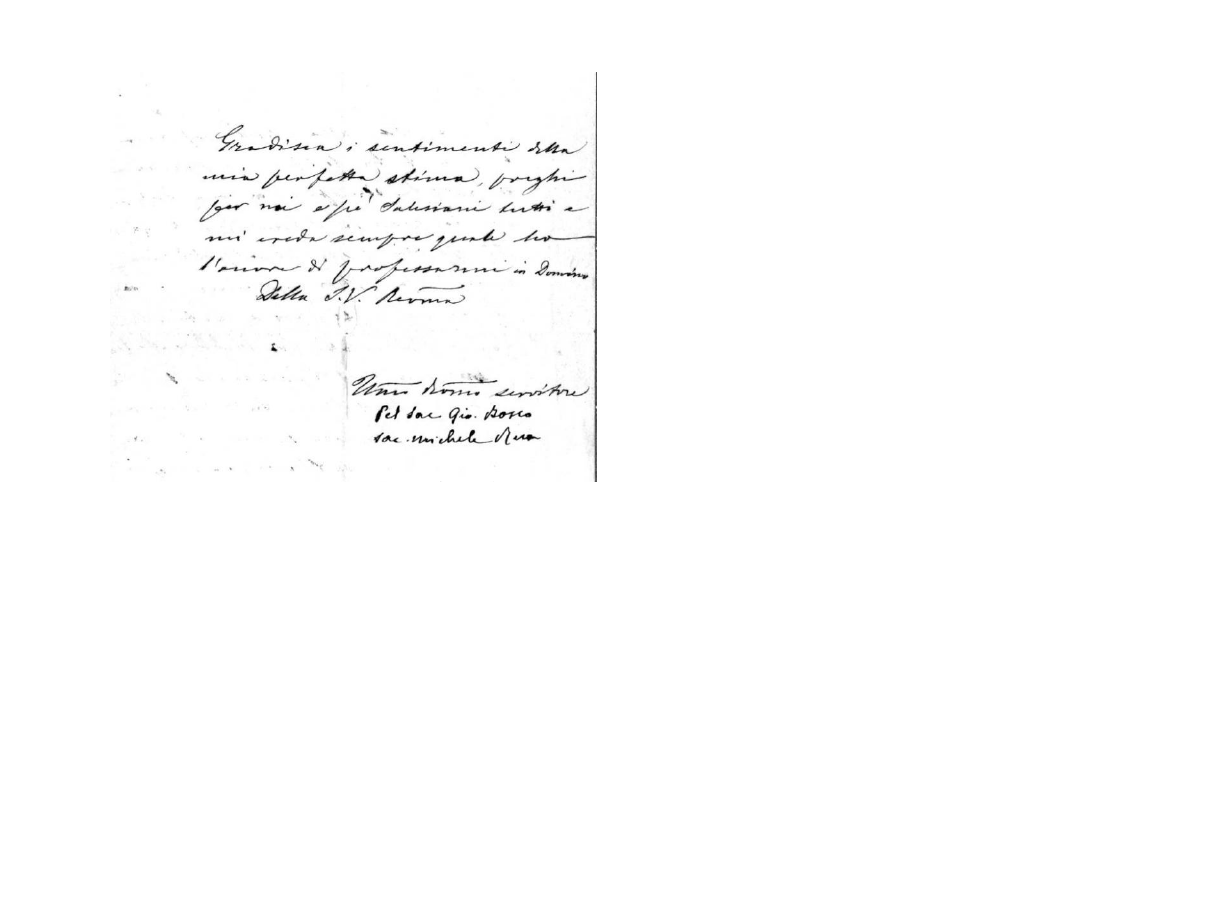 Gradisca i sentimenti della
mia perfetta stima, preghi
per noi e pei Salesiani tutti e
mi creda sempre quale ho
l'onore di professarmi in Domino
Della S.V. Revma
Umo Devmo servitore
Pel sac Gio. Bosco
sac. Michele Rua